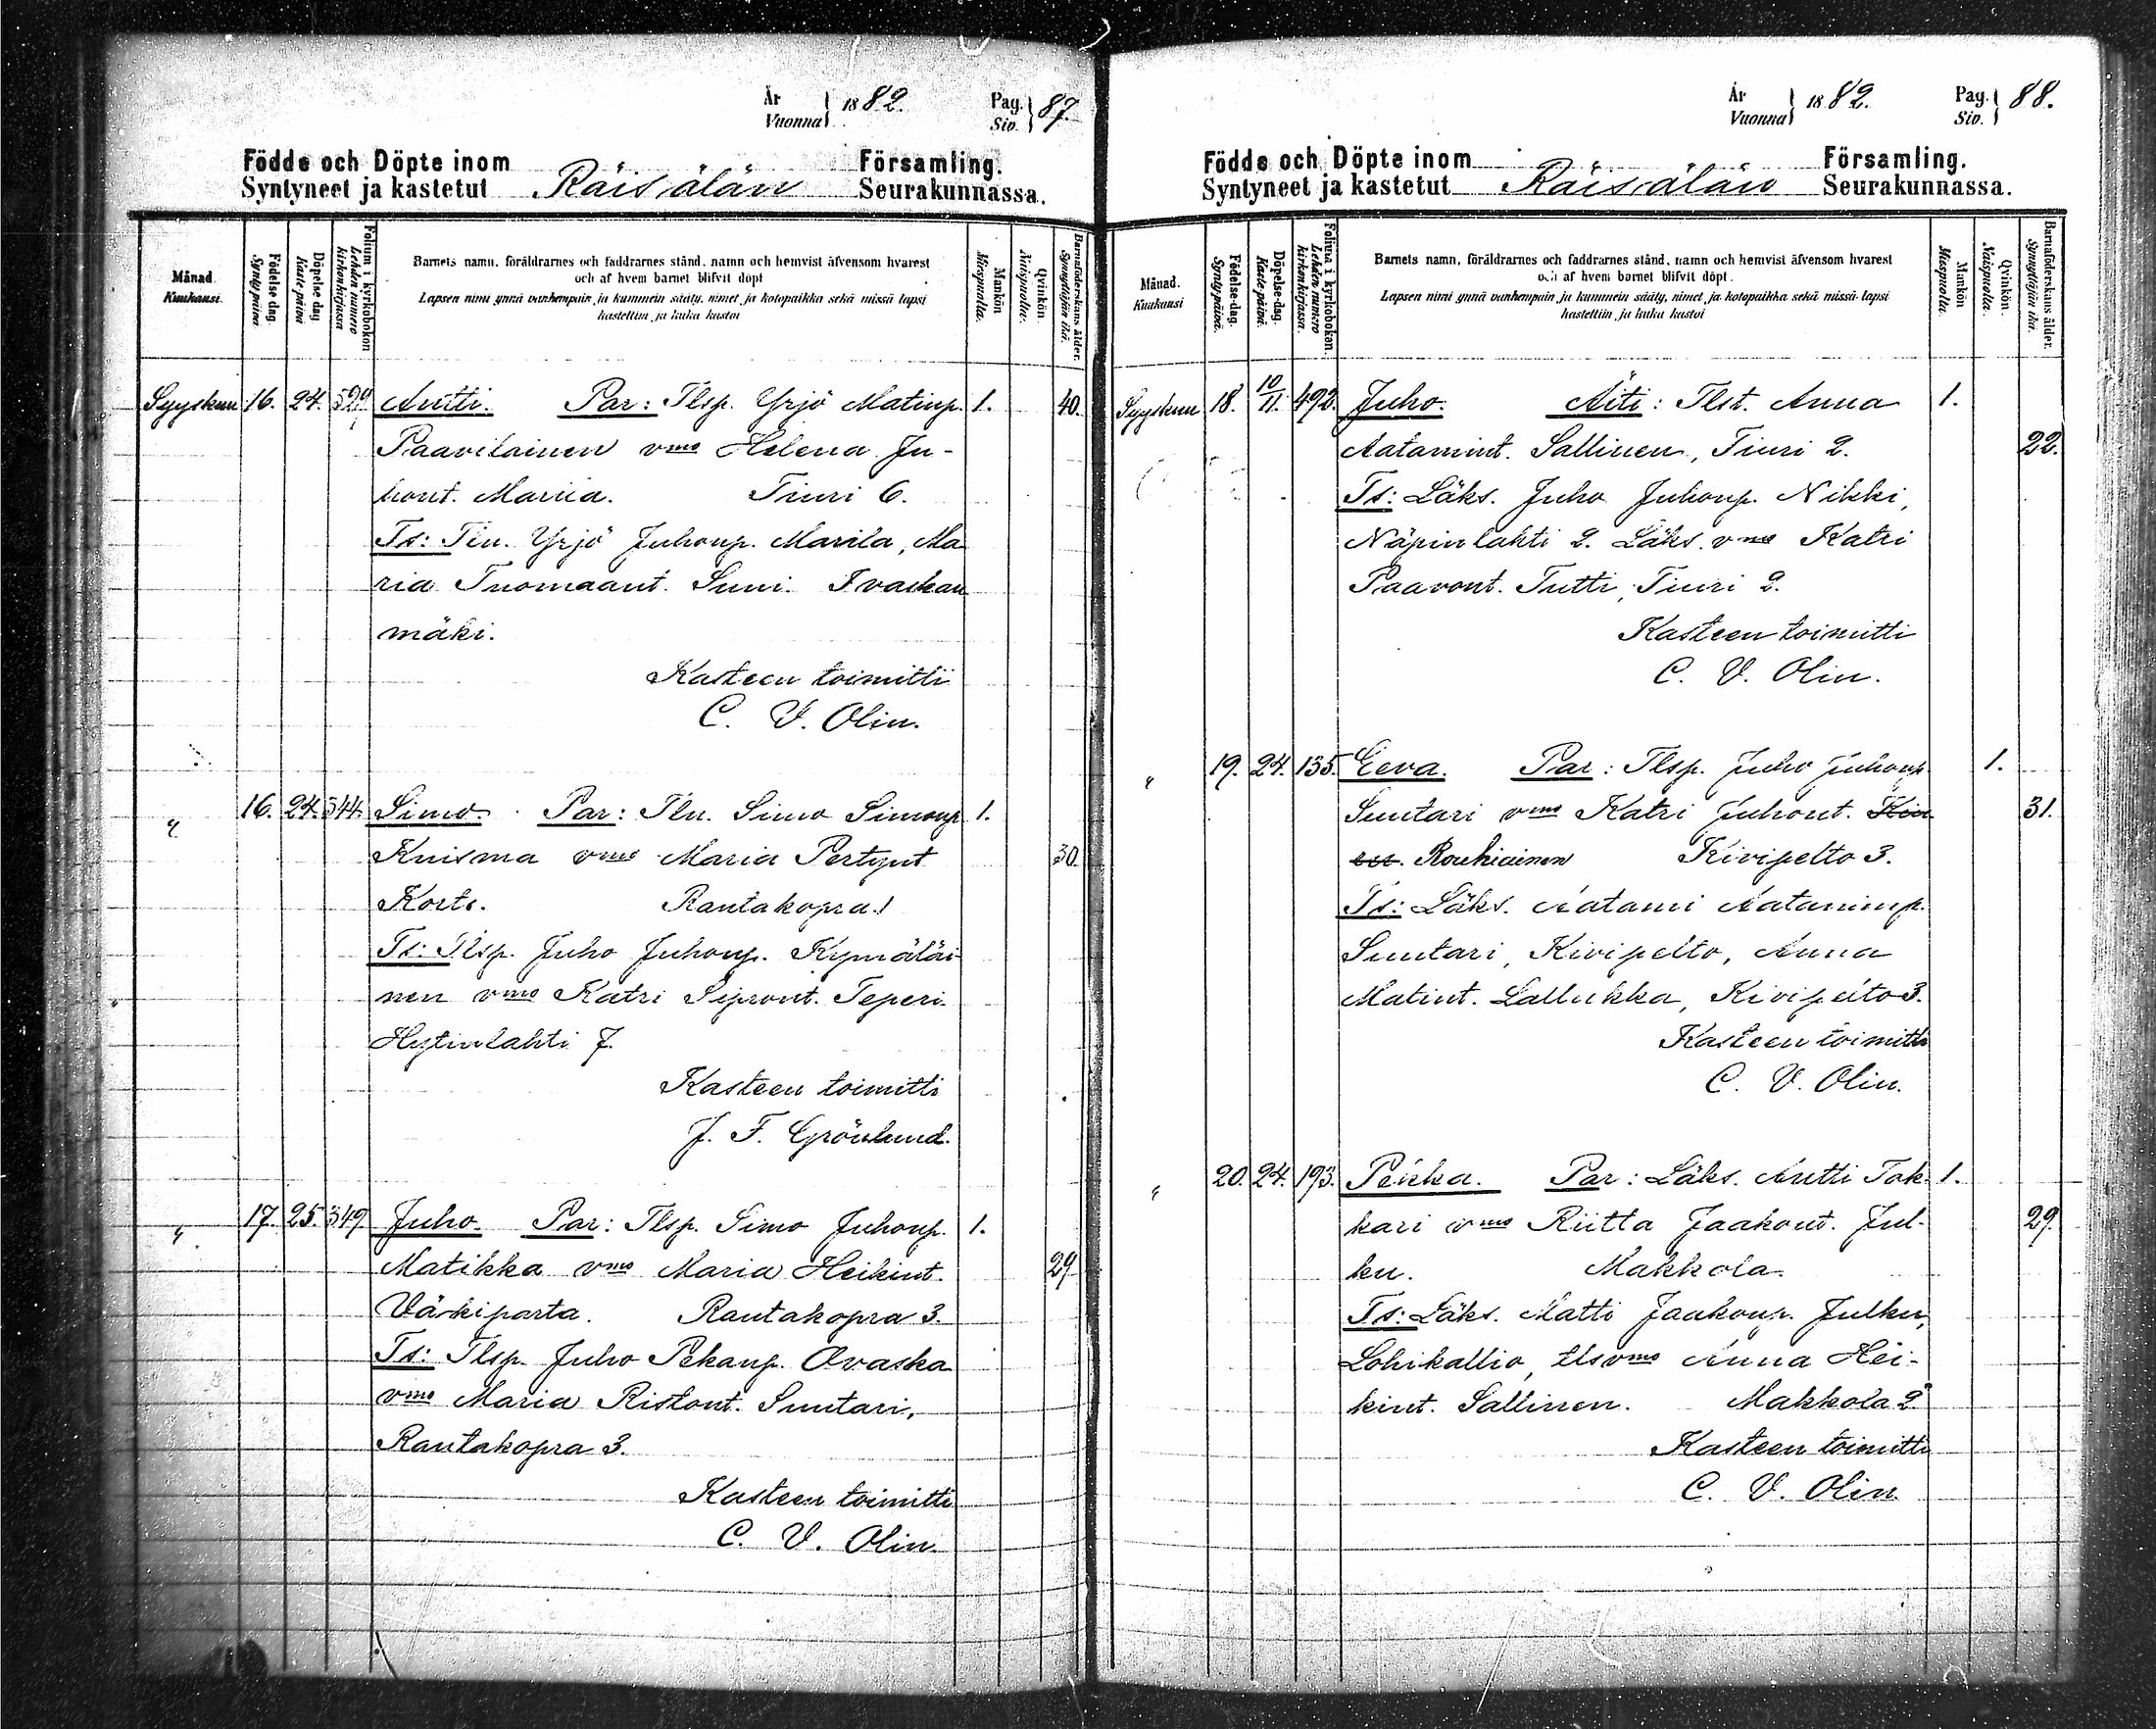 År
Vuonna } 1882. Pag.
Siv. } 87.
Födde och Döpte inom Församling.
Syntyneet ja kastetut Räisälän Seurakunnassa.
Månad.
Kuukausi.
Födelse dag.
Syntypäivä.
Döpelse dag.
Kaste päivä
Folium i kyrkoboken
Lehden numero kirkonkirjassa
Barnets namn, föräldrarnes och faddrarnes stånd, namn och hemvist äfvensom hvarest
och af hvem barnet blifvit döpt
Lapsen nimi ynnä vanhempain ja kummein sääty, nimet ja kotopaikka sekä missä lapsi
kastettiin ja kuka kastoi
Mankön
Miespuolta.
Qvinkön.
Naispuolta.
Barnaföderskans ålder.
Synnyttäjän ikä.
Syyskuu 16. 24. 529 Antti. Par: Tlsp. Yrjö Matinp. 1. 40.
Paavilainen vmo Helena Ju-
hont. Mariia. Tiuri 6.
Ts: Tln. Yrjö Juhonp. Marila, Ma
ria Tuomaant. Suni. Ivaskan
mäki.
Kasteen toimitti
C. V. Olin.
" 16. 24. 544. Simo. Par: Tln. Simo Simonp 1.
Knisma vmo Maria Pertynt 30.
Korte. Rantakopra 1
Ts: Tlsp. Juho Juhonp. Kymäläi
nen vmo Katri Sipront. Teperi.
Hytinlahti 7.
Kasteen toimitti
J. F. Grönlund.
" 17. 25. 349 Juho. Par: Tlsp. Simo Juhonp. 1.
Matikka vmo Maria Heikint. 29
Väkiparta. Rantakopra 3.
Ts: Tlsp. Juho Pekanp. Ovaska
vmo Maria Ristont. Suutari,
Rantakopra 3.
Kasteen toimitti
C. V. Olin.
År
Vuonna } 1882. Pag.
Siv. } 88.
Födde och Döpte inom Församling.
Syntyneet ja kastetut Räisälän Seurakunnassa.
Månad.
Kuukausi
Födelse-dag.
Syntypäivä.
Döpelse-dag.
Kaste päivä.
Folium i kyrkoboken.
Lehden numero kirkonkirjassa.
Barnets namn, föräldrarnes och faddrarnes stånd, namn och hemvist äfvensom hvarest
och af hvem barnet blifvit döpt.
Lapsen nimi ynnä vanhempain ja kummein sääty, nimet ja kotopaikka sekä missä lapsi
kastettiin ja kuka kastoi
Mankön
Miespuolta.
Qvinkön.
Naispuolta.
Barnaföderskans ålder.
Synnyttäjän ikä.
Syyskuu 18. 10/11. 492. Juho. Äiti: Tlst. Anna 1.
Aatamint. Sallinen, Tiuri 2. 22.
Ts: Läks. Juho Juhonp. Nikki,
Näpinlahti 2. Läks. vmo Katri
Paavont. Tutti, Tiuri 2.
Kasteen toimitti
C. V. Olin.
" 19. 24. 135. Eeva. Par: Tlsp. Juho Juhonp 1.
Suutari vmo Katri Juhont. 31.
Rouhiainen Kivipelto 3.
Ts: Läks. Aatami Aataminp.
Suutari, Kivipelto, Anna
Matint. Lallukka, Kivipelto 3.
Kasteen toimitti
C. V. Olin.
" 20. 24. 193. Pekka. Par: Läks. Antti Tak 1.
kari vmo Riitta Jaakont. Jul- 29.
ku. Makkola.
Ts: Läks. Matti Jaakonp. Julku,
Lohikallio, tlsvmo Anna Hei-
kint. Sallinen. Makkola 2
Kasteen toimitti
C. V. Olin.